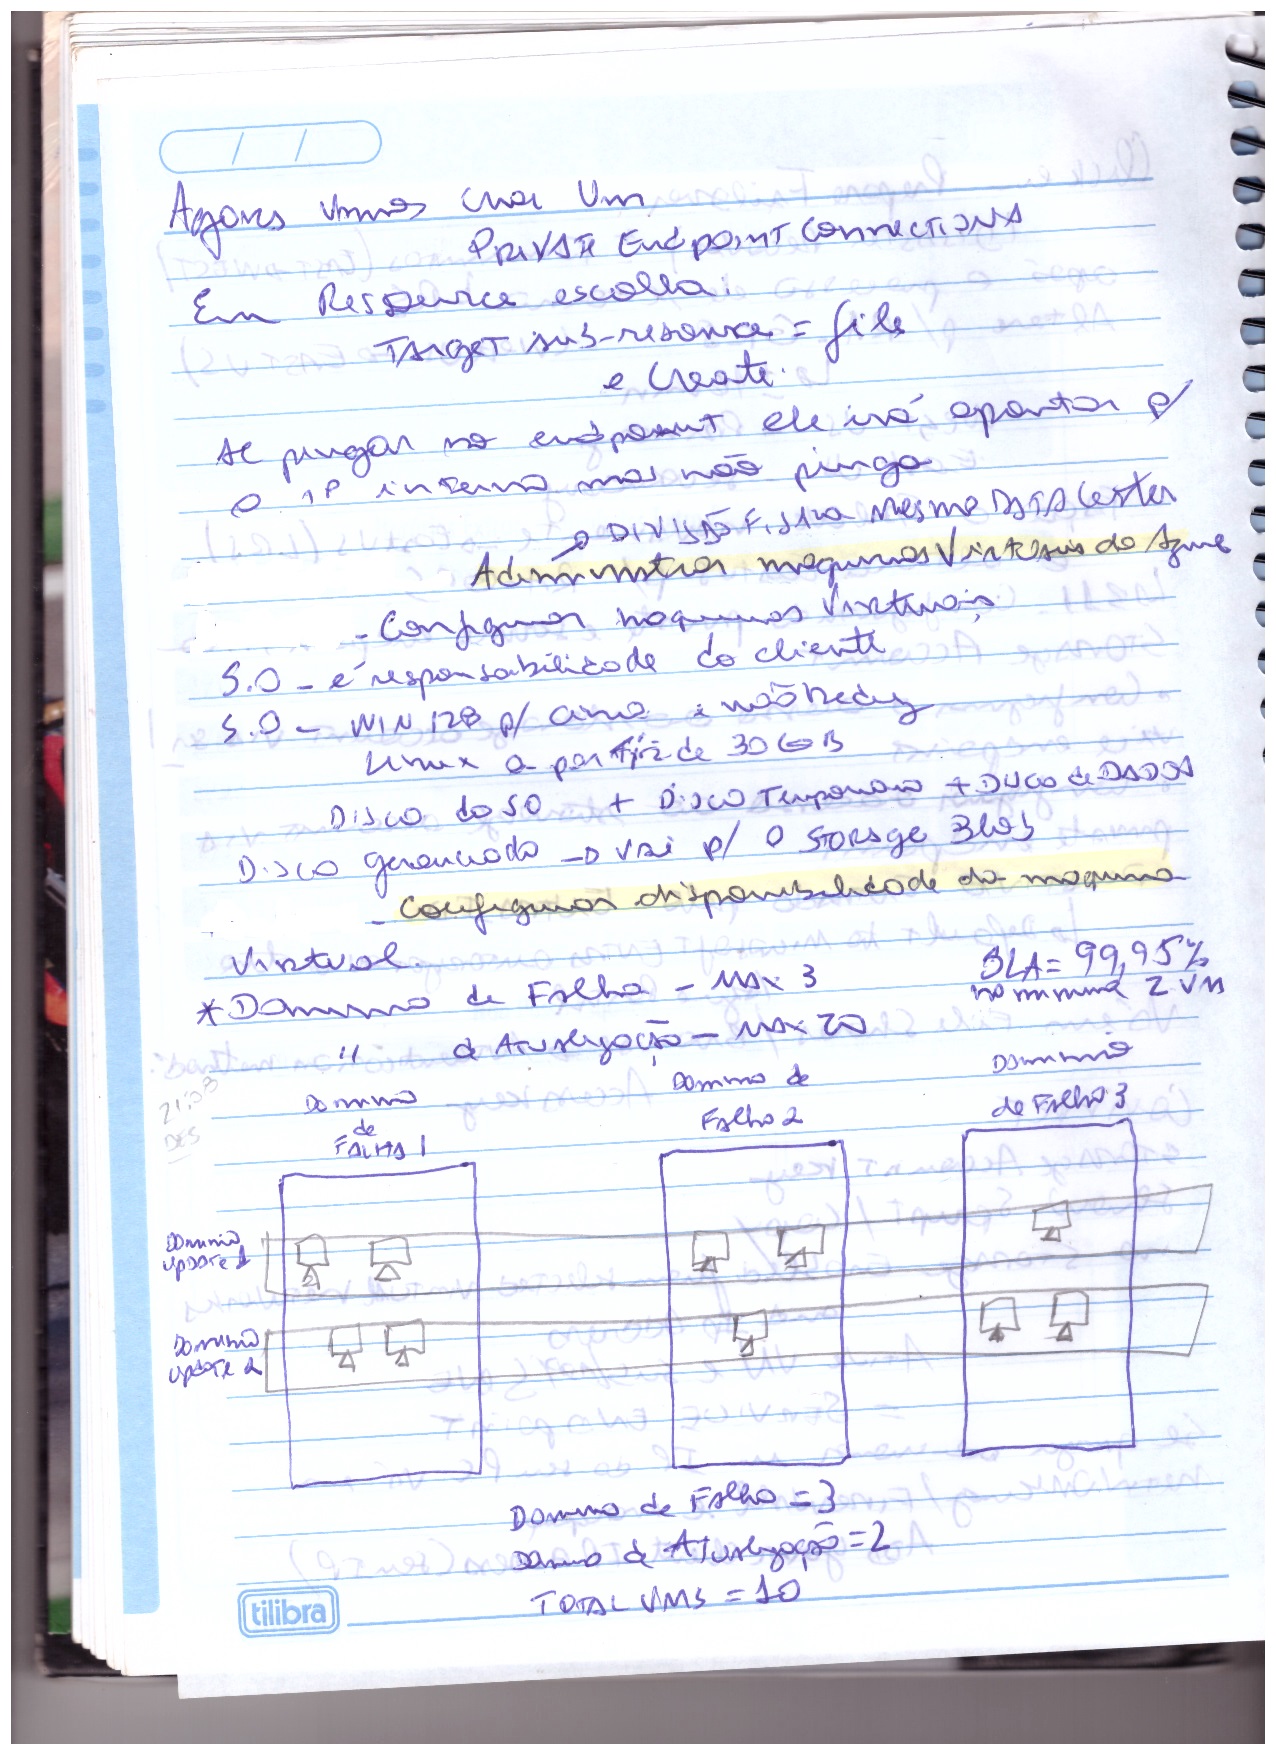 / /
Agora vamos criar um
Private Endpoint Connections
Em Resource escolha:
Target sub-resource = file
e Create.
se pingar no endpoint ele irá apontar p/
o IP interno mas não pinga
→ Divisão Física mesmo DataCenter
Administrar maquinas Virtuais do Azure
- Configurar maquinas Virtuais
S.O - é responsabilidade do cliente
S.O - WIN 128 p/ cima
Linux a partir de 30 GB
Disco do SO + Disco Temporario + Disco de DADOS
Disco gerenciado → vai p/ o storage Blob
- Configurar disponibilidade da maquina
Virtual. SLA = 99,95%
no minimo 2 VM
* Dominio de Falha - Max 3
" de Atualização - Max 20
21:03
DES
Dominio de FALHA 1
Dominio de Falha 2
Dominio de Falha 3
Dominio update 1
Dominio update 2
Dominio de Falha = 3
Dominio de Atualização = 2
TOTAL VMS = 10
tilibra